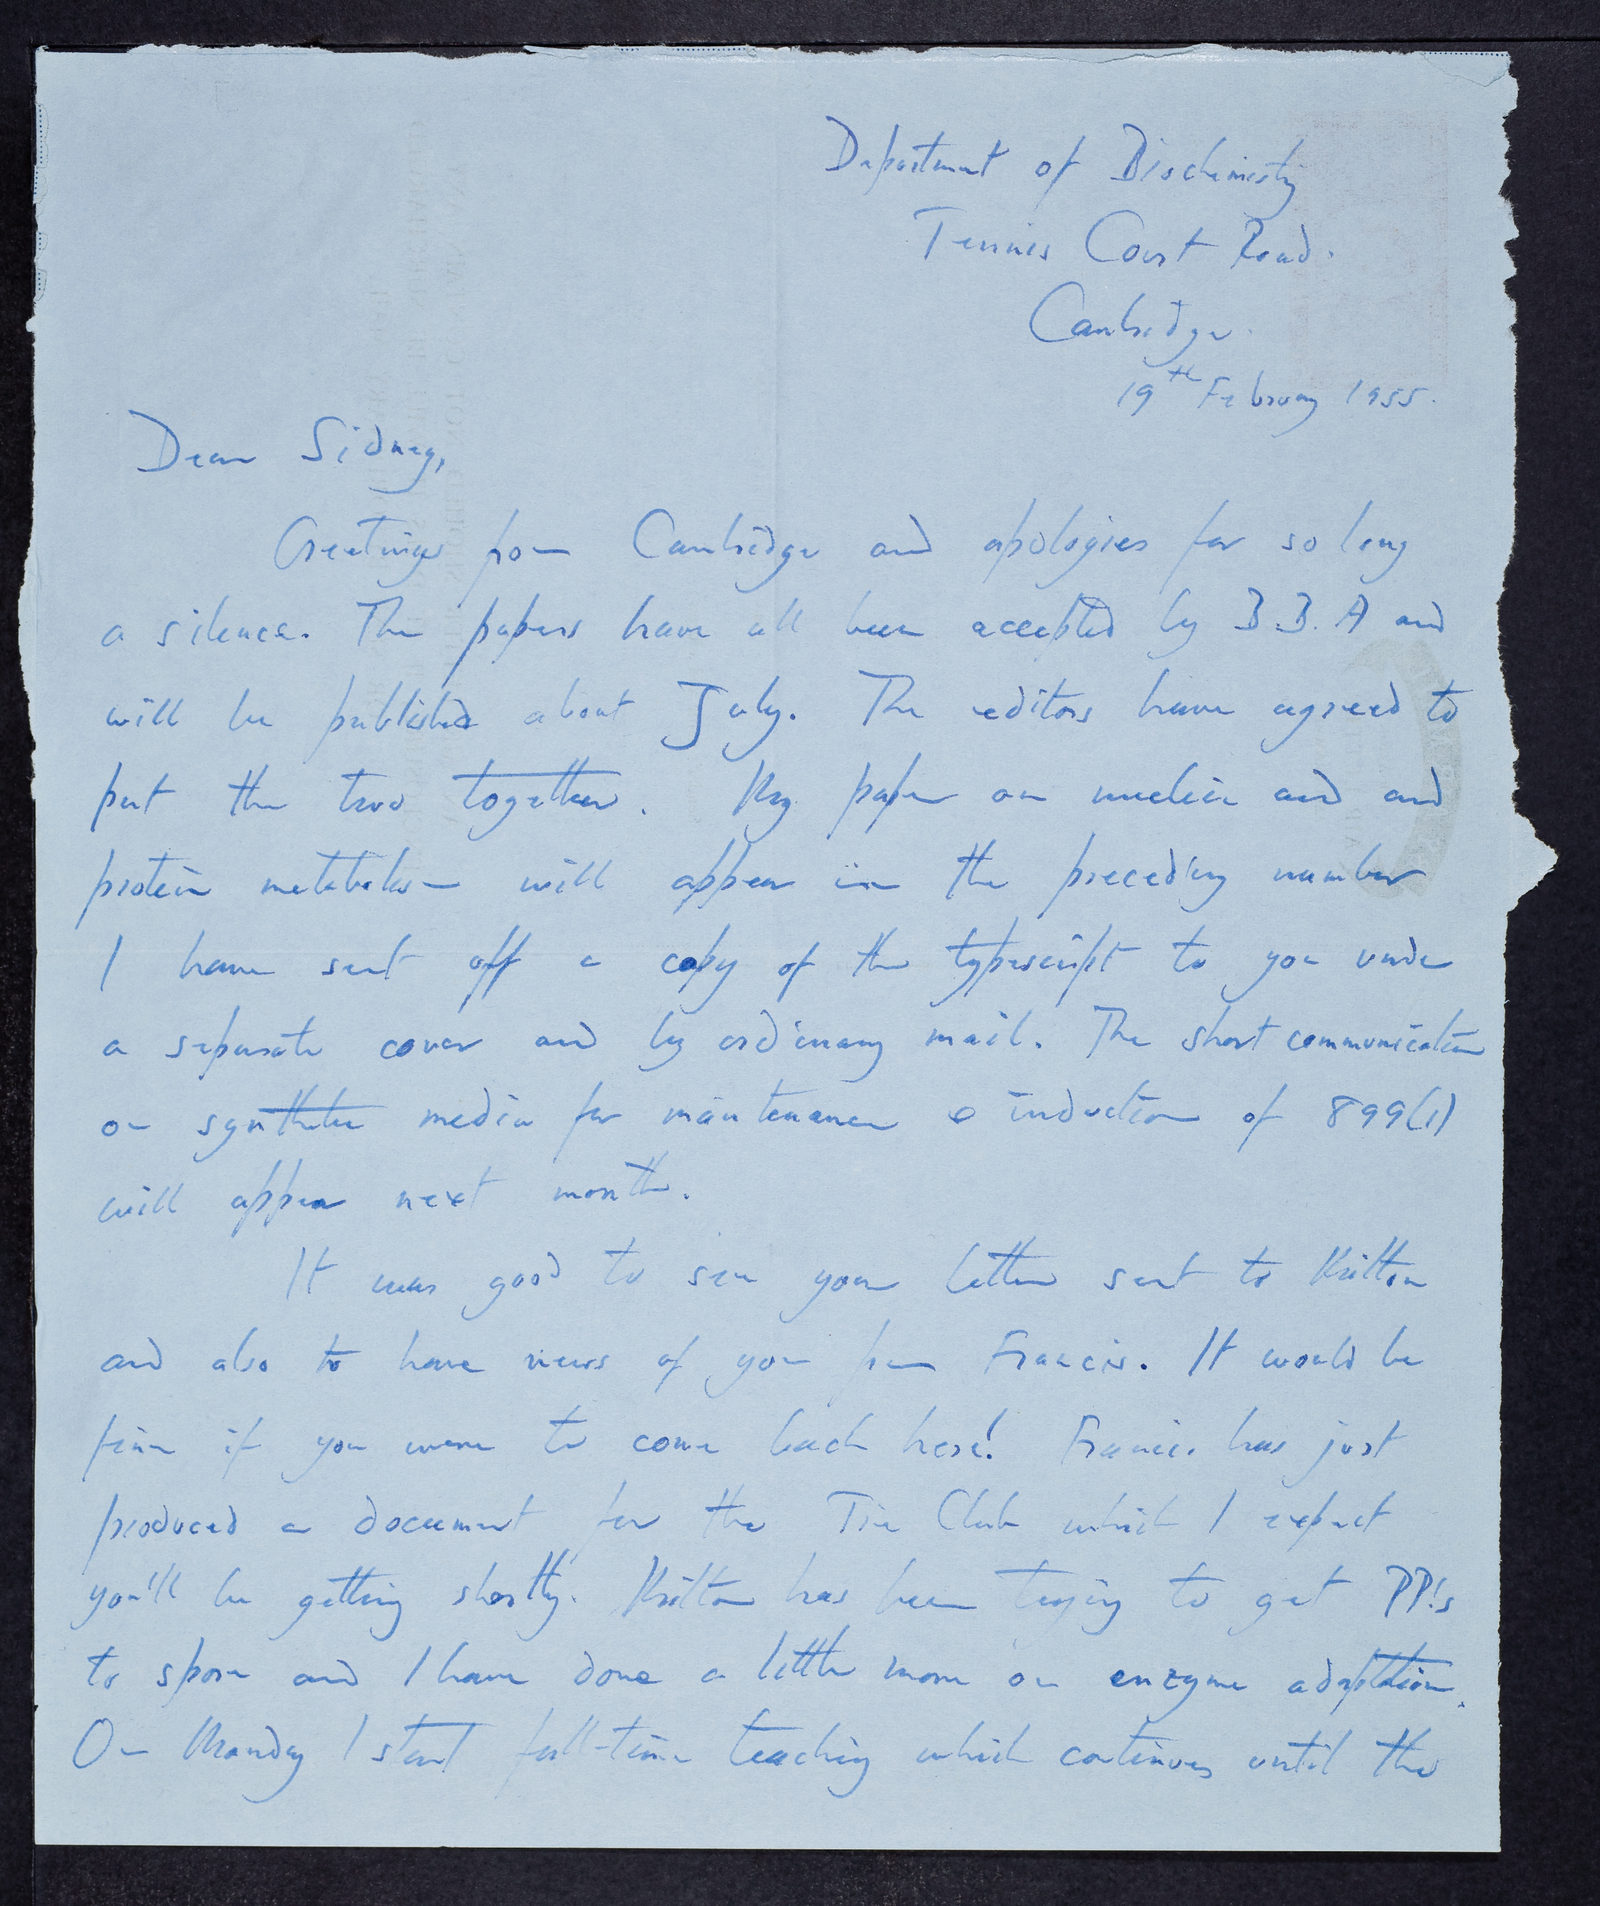 Department of Biochemistry
Tennis Court Road.
Cambridge.
19th February 1955.
Dear Sidney,
Greetings from Cambridge and apologies for so long
a silence. The papers have all been accepted by B.B.A and
will be published about July. The editors have agreed to
put the two together. My paper on nucleic acid and
protein metabolism will appear in the preceding number
I have sent off a copy of the typescript to you under
a separate cover and by ordinary mail. The short communication
on synthetic media for maintenance & induction of 899(1)
will appear next month.
It was good to see your letter sent to Kritton
and also to have news of you from Francis. It would be
fine if you were to come back here! Francis has just
produced a document for the Tie Club which I expect
you'll be getting shortly. Kritton has been trying to get PP!s
to spore and I have done a little more on enzyme adaptation.
On Monday I start full-time teaching which continues until the